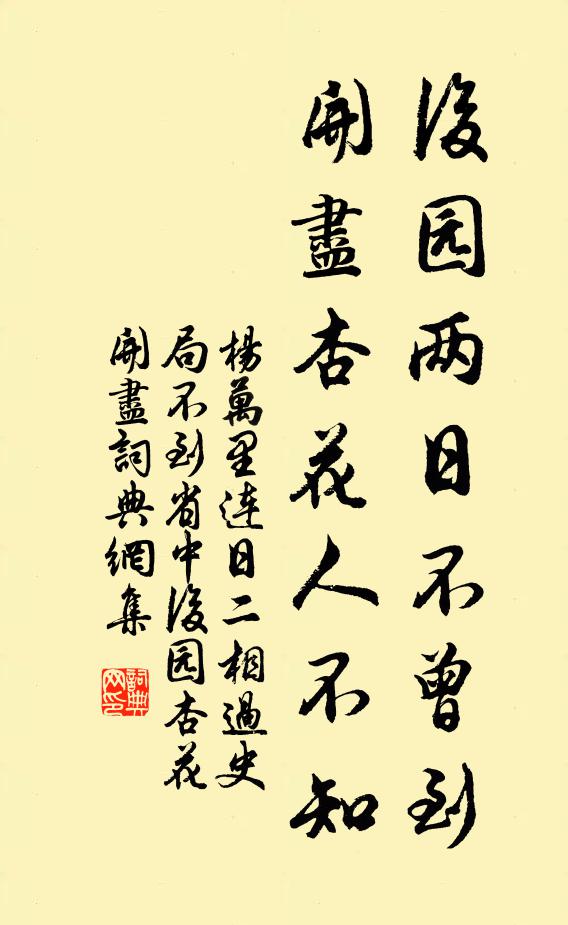 後园两日不曾到
開盡杏花人不知
楊萬里連日二相過史
局不到省中後园杏花
開盡詞典網集
詞典
网印